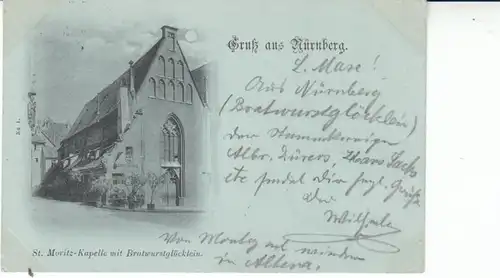 Gruß aus Nürnberg.
L. Maxe!
Aus Nürnberg
(Bratwurstglöcklein)
der Stammkneipe
Albr. Dürers, Hans Sachs
etc sendet Dir Grüße
Dein
Wilhelm
St. Moritz-Kapelle mit Bratwurstglöcklein.
Von
in